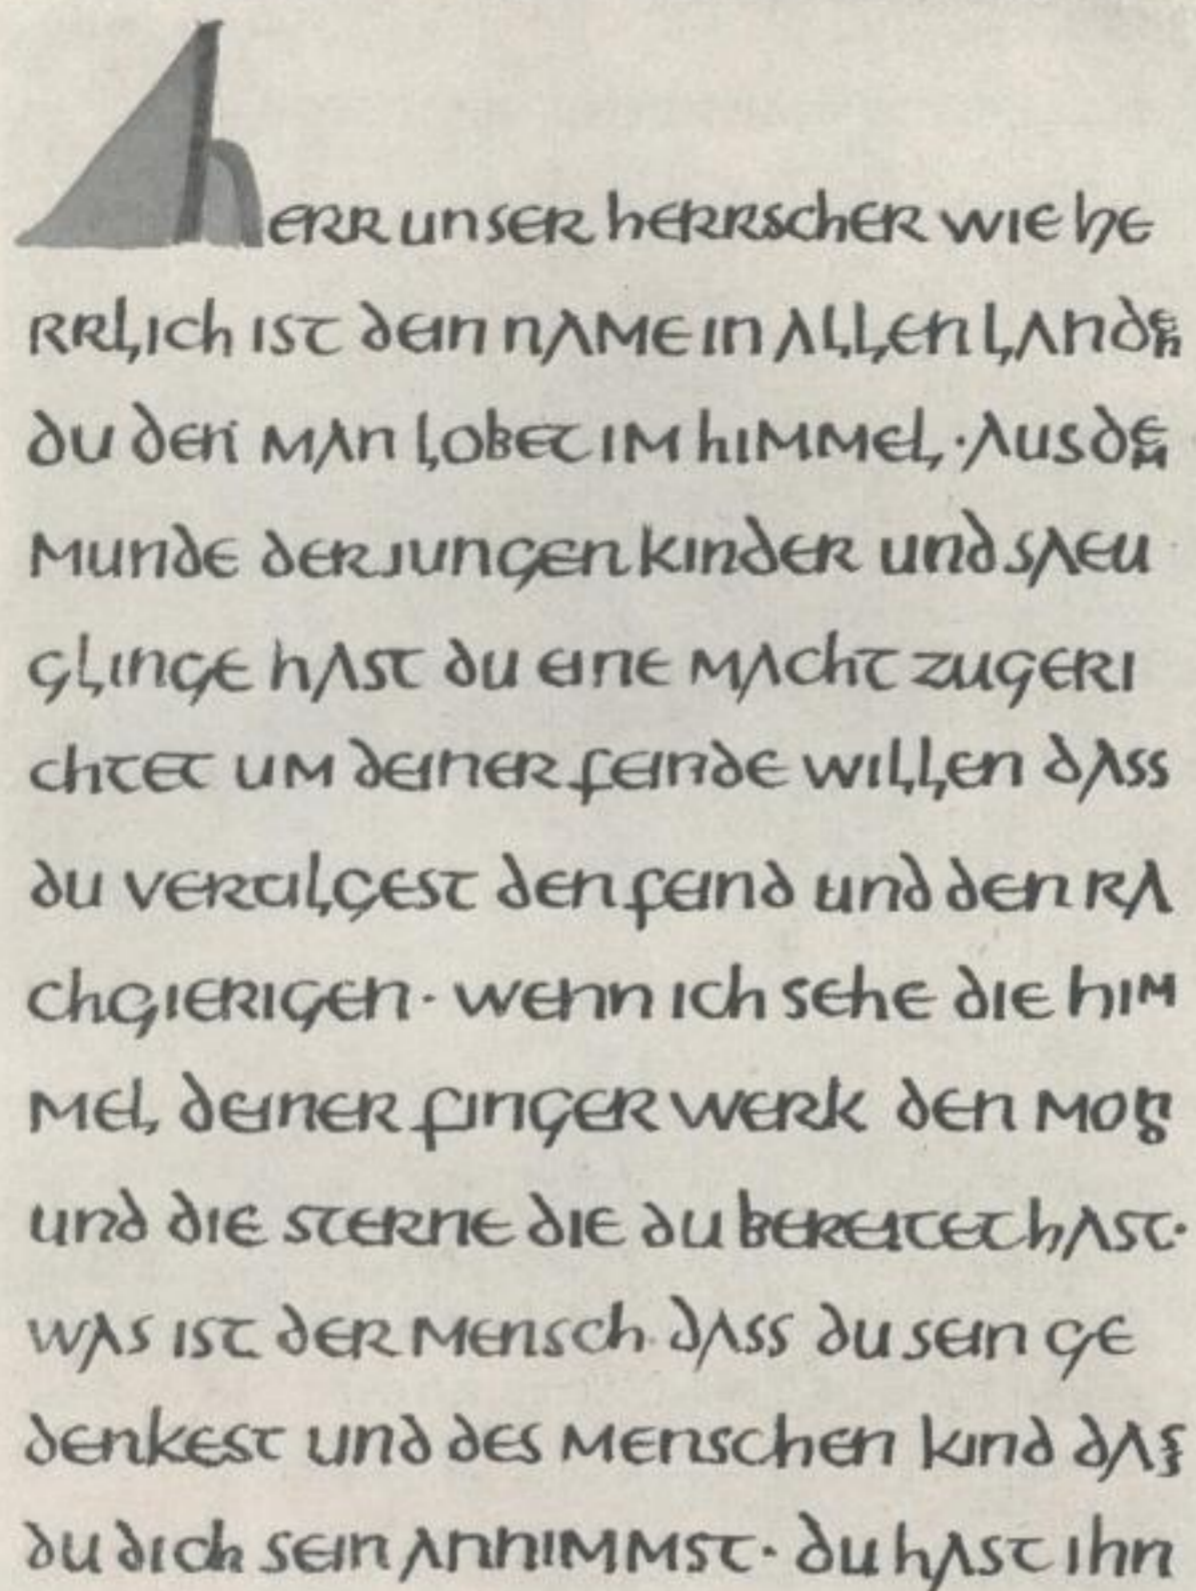 herr unser herrscher wie he
rrlich ist dein name in allen landen
du den man lobet im himmel · aus dem
munde der jungen kinder und saeu
glinge hast du eine macht zugeri
chtet um deiner feinde willen dass
du vertilgest den feind und den ra
chgierigen · wenn ich sehe die him
mel deiner finger werk den mond
und die sterne die du bereitet hast ·
was ist der mensch dass du sein ge
denkest und des menschen kind dass
du dich sein annimmst · du hast ihn